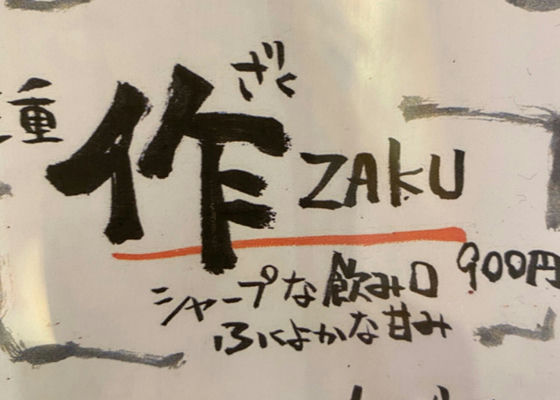 ざく
重
作 ZAKU
900円
シャープな飲み口
ふくよかな甘み